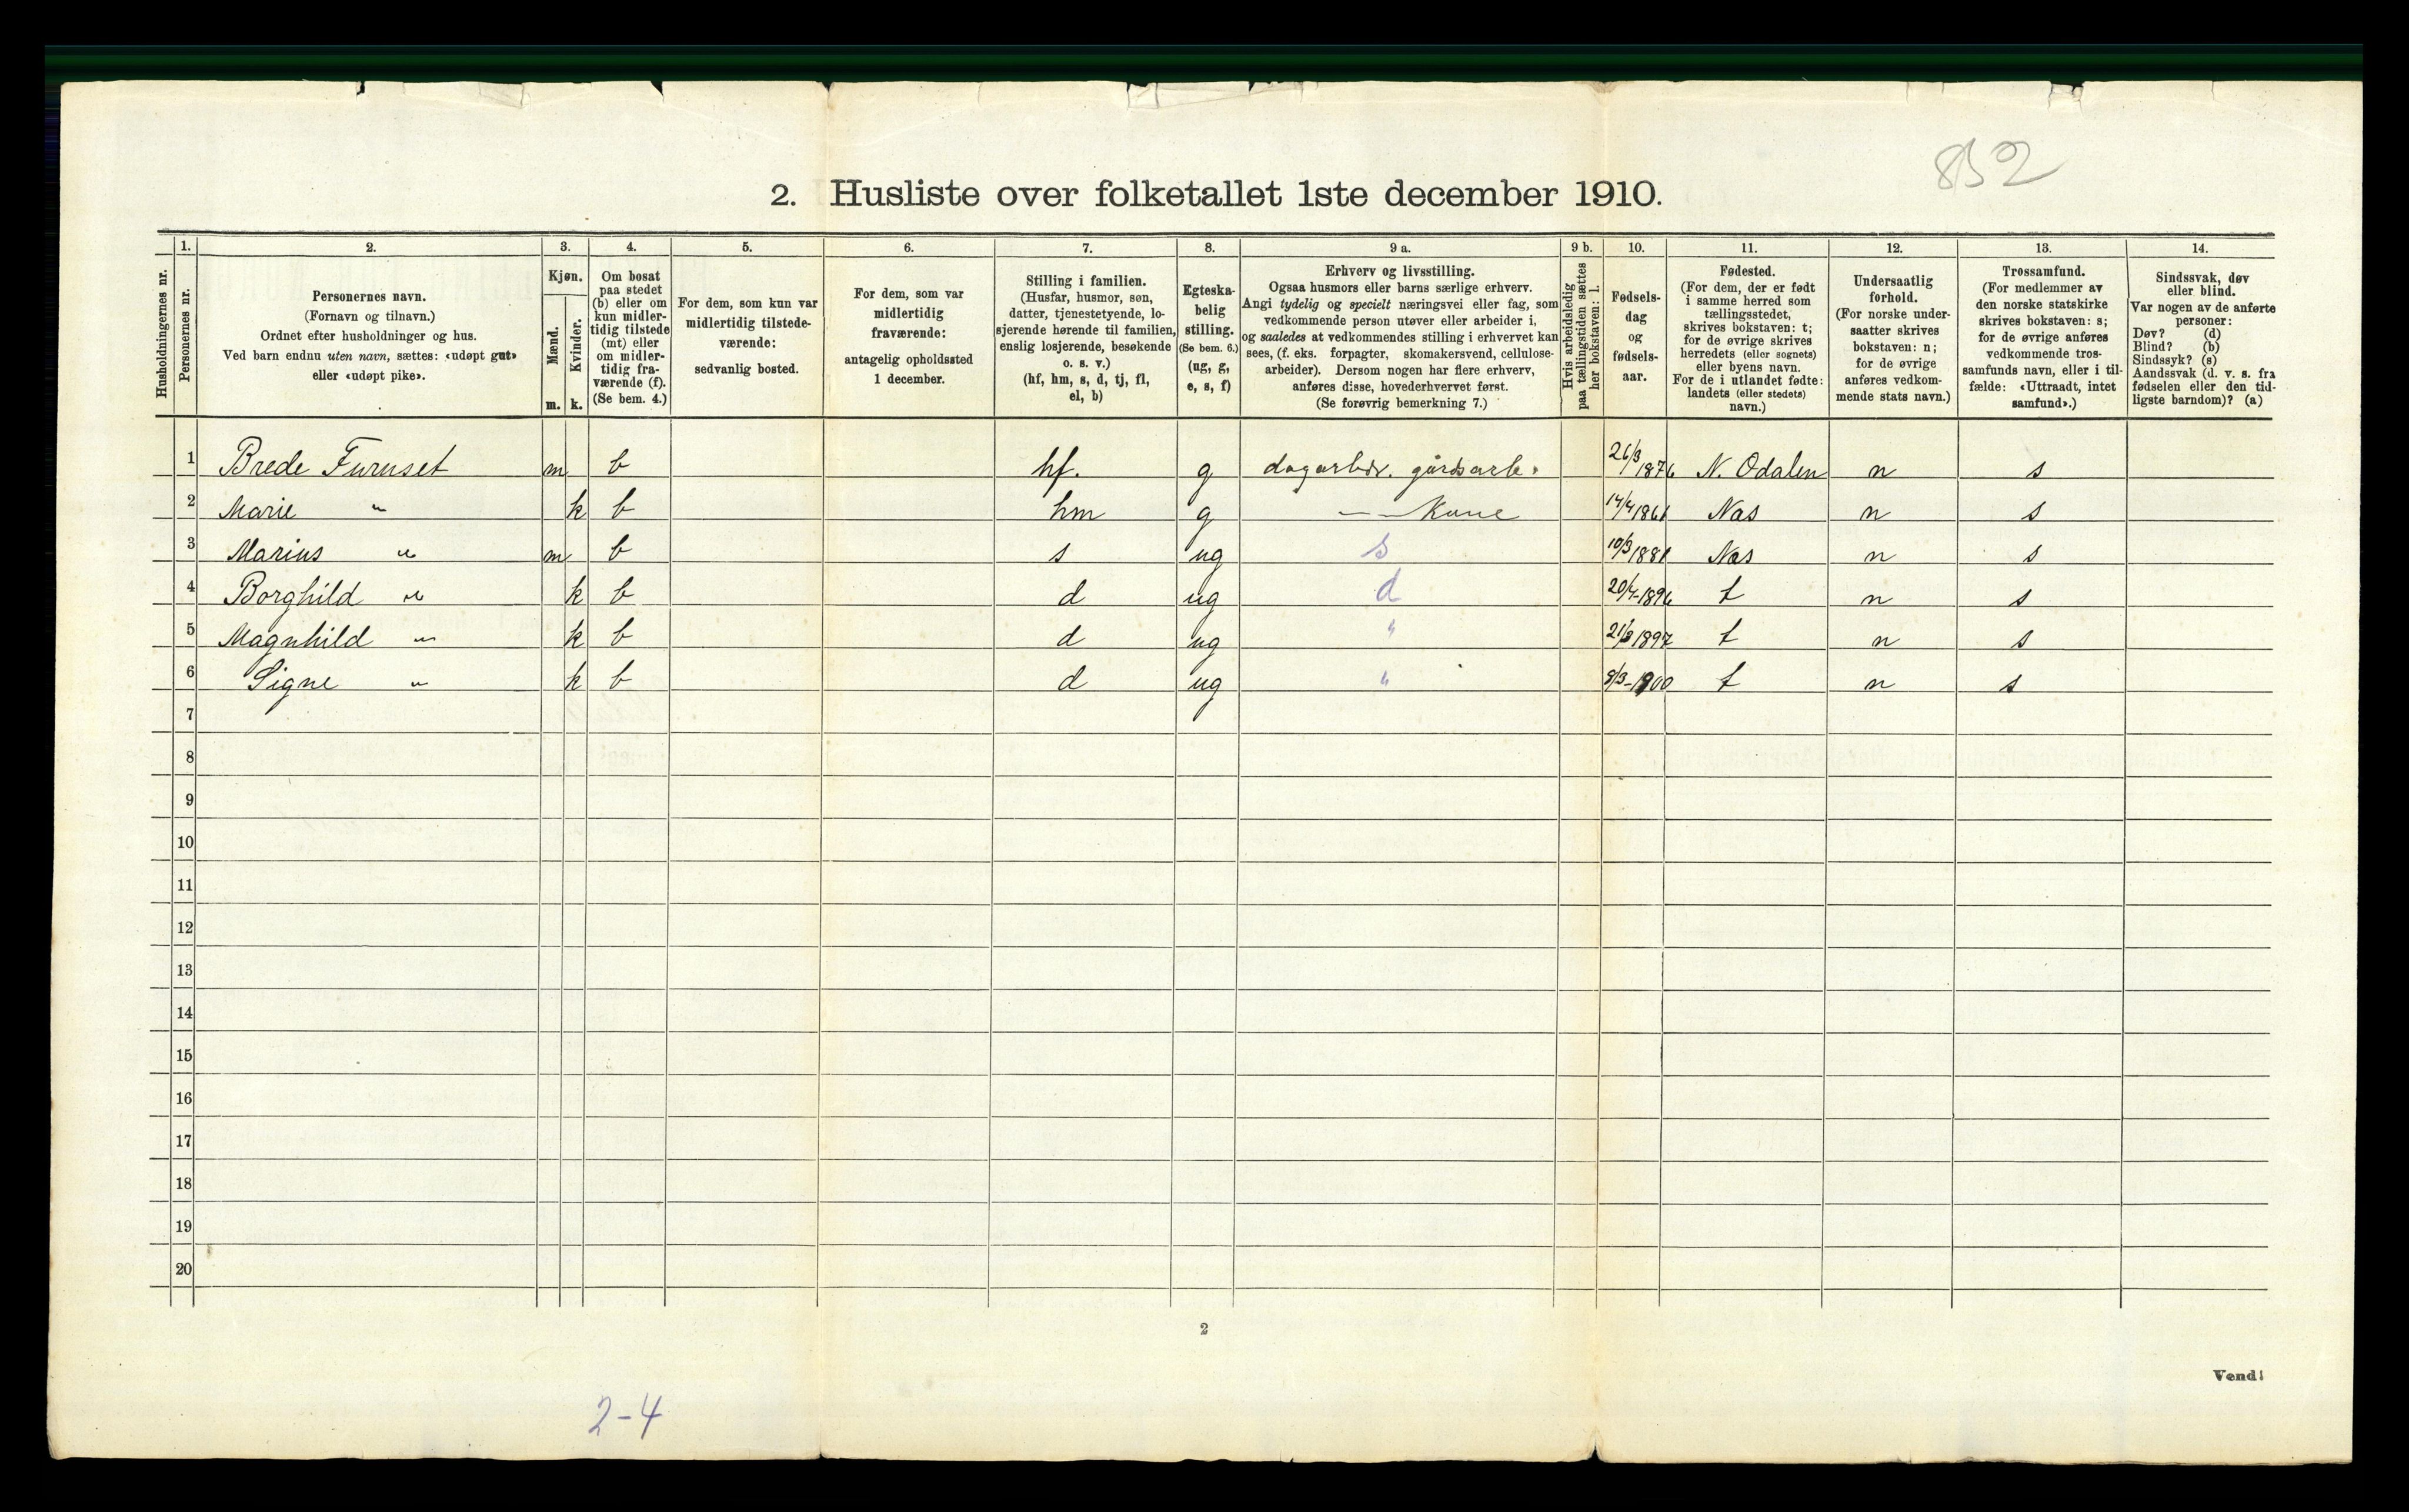 852
2. Husliste over folketallet 1ste december 1910.
Husholdningernes nr.
1.
Personernes nr.
2.
Personernes navn.
(Fornavn og tilnavn.)
Ordnet efter husholdninger og hus.
Ved barn endnu uten navn, sættes: «udøpt gut»
eller «udøpt pike».
3.
Kjøn.
Mænd.
Kvinder.
m. k.
4.
Om bosat
paa stedet
(b) eller om
kun midler-
tidig tilstede
(mt) eller
om midler-
tidig fra-
værende (f).
(Se bem. 4.)
5.
For dem, som kun var
midlertidig tilstede-
værende:
sedvanlig bosted.
6.
For dem, som var
midlertidig
fraværende:
antagelig opholdssted
1 december.
7.
Stilling i familien.
(Husfar, husmor, søn,
datter, tjenestetyende, lo-
sjerende hørende til familien,
enslig losjerende, besøkende
o. s. v.)
(hf, hm, s, d, tj, fl,
el, b)
8.
Egteska-
belig
stilling.
(Se bem. 6.)
(ug, g,
e, s, f)
9 a.
Erhverv og livsstilling.
Ogsaa husmors eller barns særlige erhverv.
Angi tydelig og specielt næringsvei eller fag, som
vedkommende person utøver eller arbeider i,
og saaledes at vedkommendes stilling i erhvervet kan
sees, (f. eks. forpagter, skomakersvend, cellulose-
arbeider). Dersom nogen har flere erhverv,
anføres disse, hovederhvervet først.
(Se forøvrig bemerkning 7.)
9 b.
Hvis arbeidsledig
paa tællingstiden sættes
her bokstaven: l.
10.
Fødsels-
dag
og
fødsels-
aar.
11.
Fødested.
(For dem, der er født
i samme herred som
tællingsstedet,
skrives bokstaven: t;
for de øvrige skrives
herredets (eller sognets)
eller byens navn.
For de i utlandet fødte:
landets (eller stedets)
navn.)
12.
Undersaatlig
forhold.
(For norske under-
saatter skrives
bokstaven: n;
for de øvrige
anføres vedkom-
mende stats navn.)
13.
Trossamfund.
(For medlemmer av
den norske statskirke
skrives bokstaven: s;
for de øvrige anføres
vedkommende tros-
samfunds navn, eller i til-
fælde: «Uttraadt, intet
samfund».)
14.
Sindssvak, døv
eller blind.
Var nogen av de anførte
personer:
Døv? (d)
Blind? (b)
Sindssyk? (s)
Aandssvak (d. v. s. fra
fødselen eller den tid-
ligste barndom)? (a)
1 Brede Furuset m b hf. g dagarbdr. gårdsarb. 26/3 1876 N. Odalen n s
2 Marie " k b hm g — — Kone 14/4 1861 Nas n s
3 Marius " m b s ug s 10/3 1881 Næs n s
4 Borghild " k b d ug d 20/4-1896 t n s
5 Magnhild " k b d ug " 1897 t n s
6 Signe " k b d ug " 8/3-1900 t n s
7
8
9
10
11
12
13
14
15
16
17
18
19
20
2
Vend!
2-4